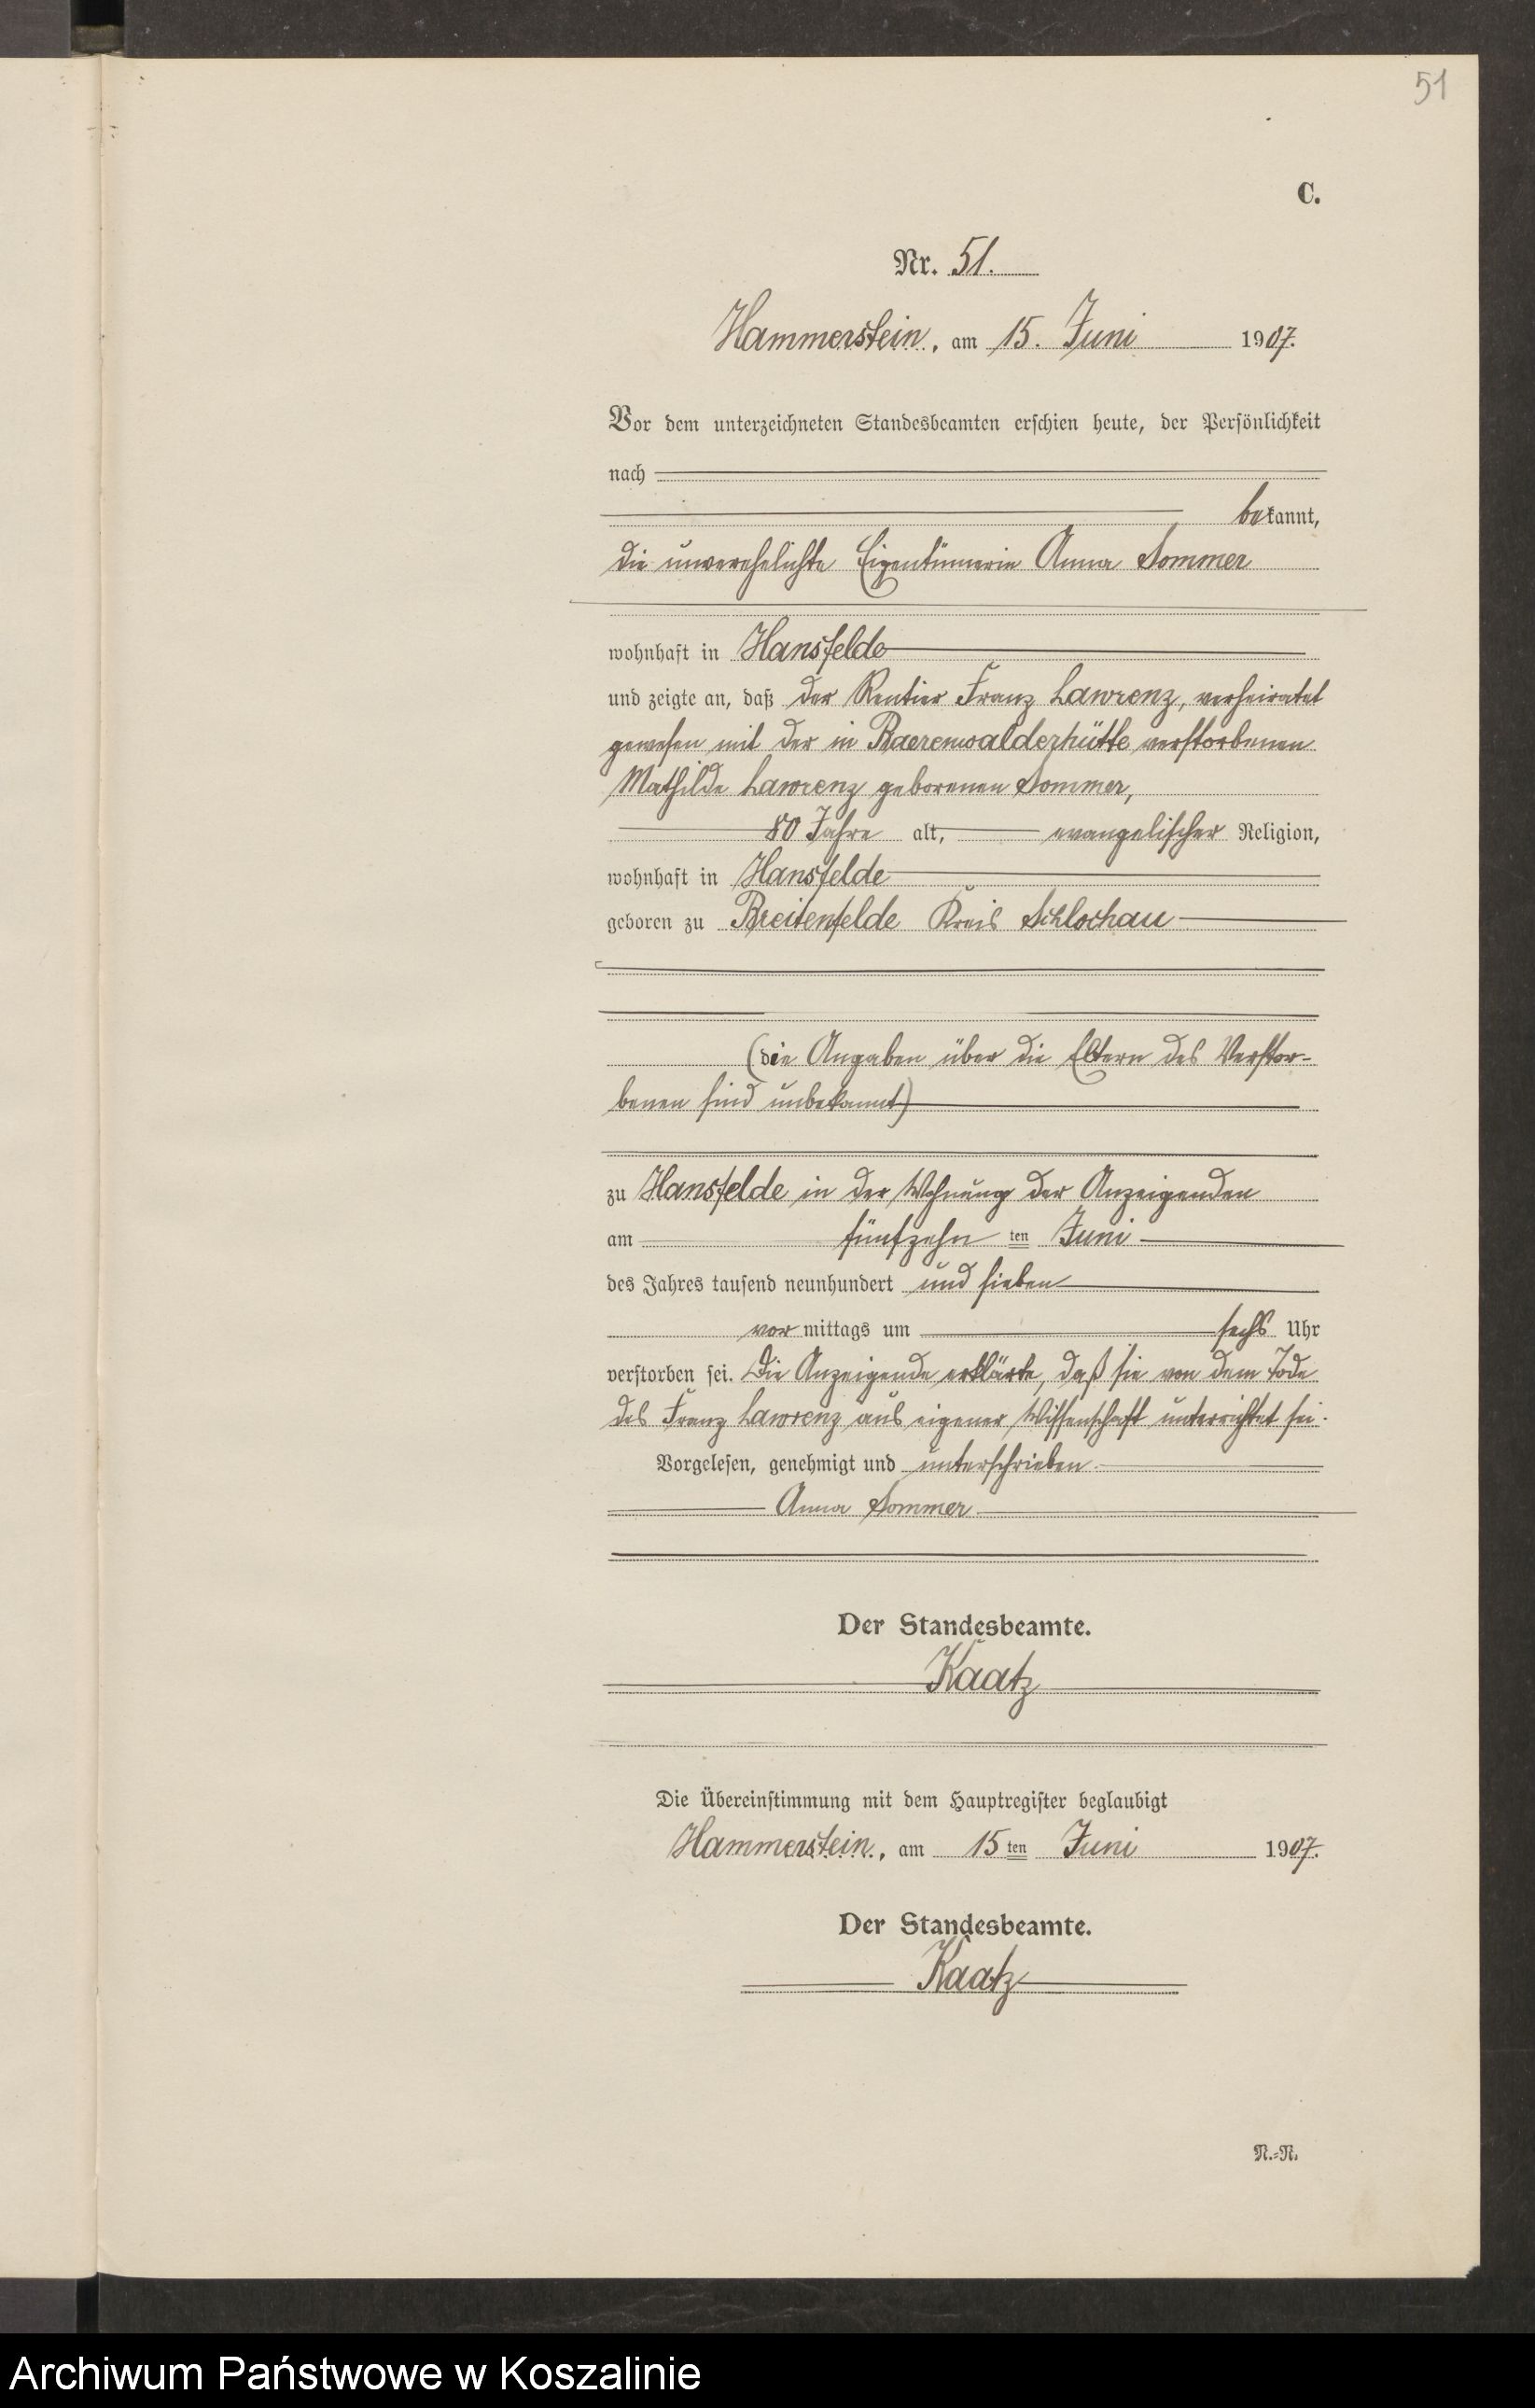 51
C.
Nr. 51.
Hammerstein, am 15. Juni 1907.
Vor dem unterzeichneten Standesbeamten erschien heute, der Persönlichkeit
nach
bekannt,
die unverehelichte Eigentümerin Anna Sommer
wohnhaft in Hansfelde
und zeigte an, daß der Rentier Franz Lawrenz, verheiratet
gewesen mit der in Baerenwalderhütte verstorbenen
Mathilde Lawrenz geborenen Sommer,
80 Jahre alt, evangelischer Religion,
wohnhaft in Hansfelde
geboren zu Breitenfelde Kreis Schlochau
(die Angaben über die Eltern des Verstor-
benen sind unbekannt)
zu Hansfelde in der Wohnung der Anzeigenden
am fünfzehn ten Juni
des Jahres tausend neunhundert und sieben
vor mittags um sechs Uhr
verstorben sei. Die Anzeigende erklärte, daß sie von dem Tode
des Franz Lawrenz aus eigener Wissenschaft unterrichtet sei.
Vorgelesen, genehmigt und unterschrieben
Anna Sommer
Der Standesbeamte.
Kaatz
Die Übereinstimmung mit dem Hauptregister beglaubigt
Hammerstein, am 15 ten Juni 1907.
Der Standesbeamte.
Kaatz
N.=N.
Archiwum Państwowe w Koszalinie